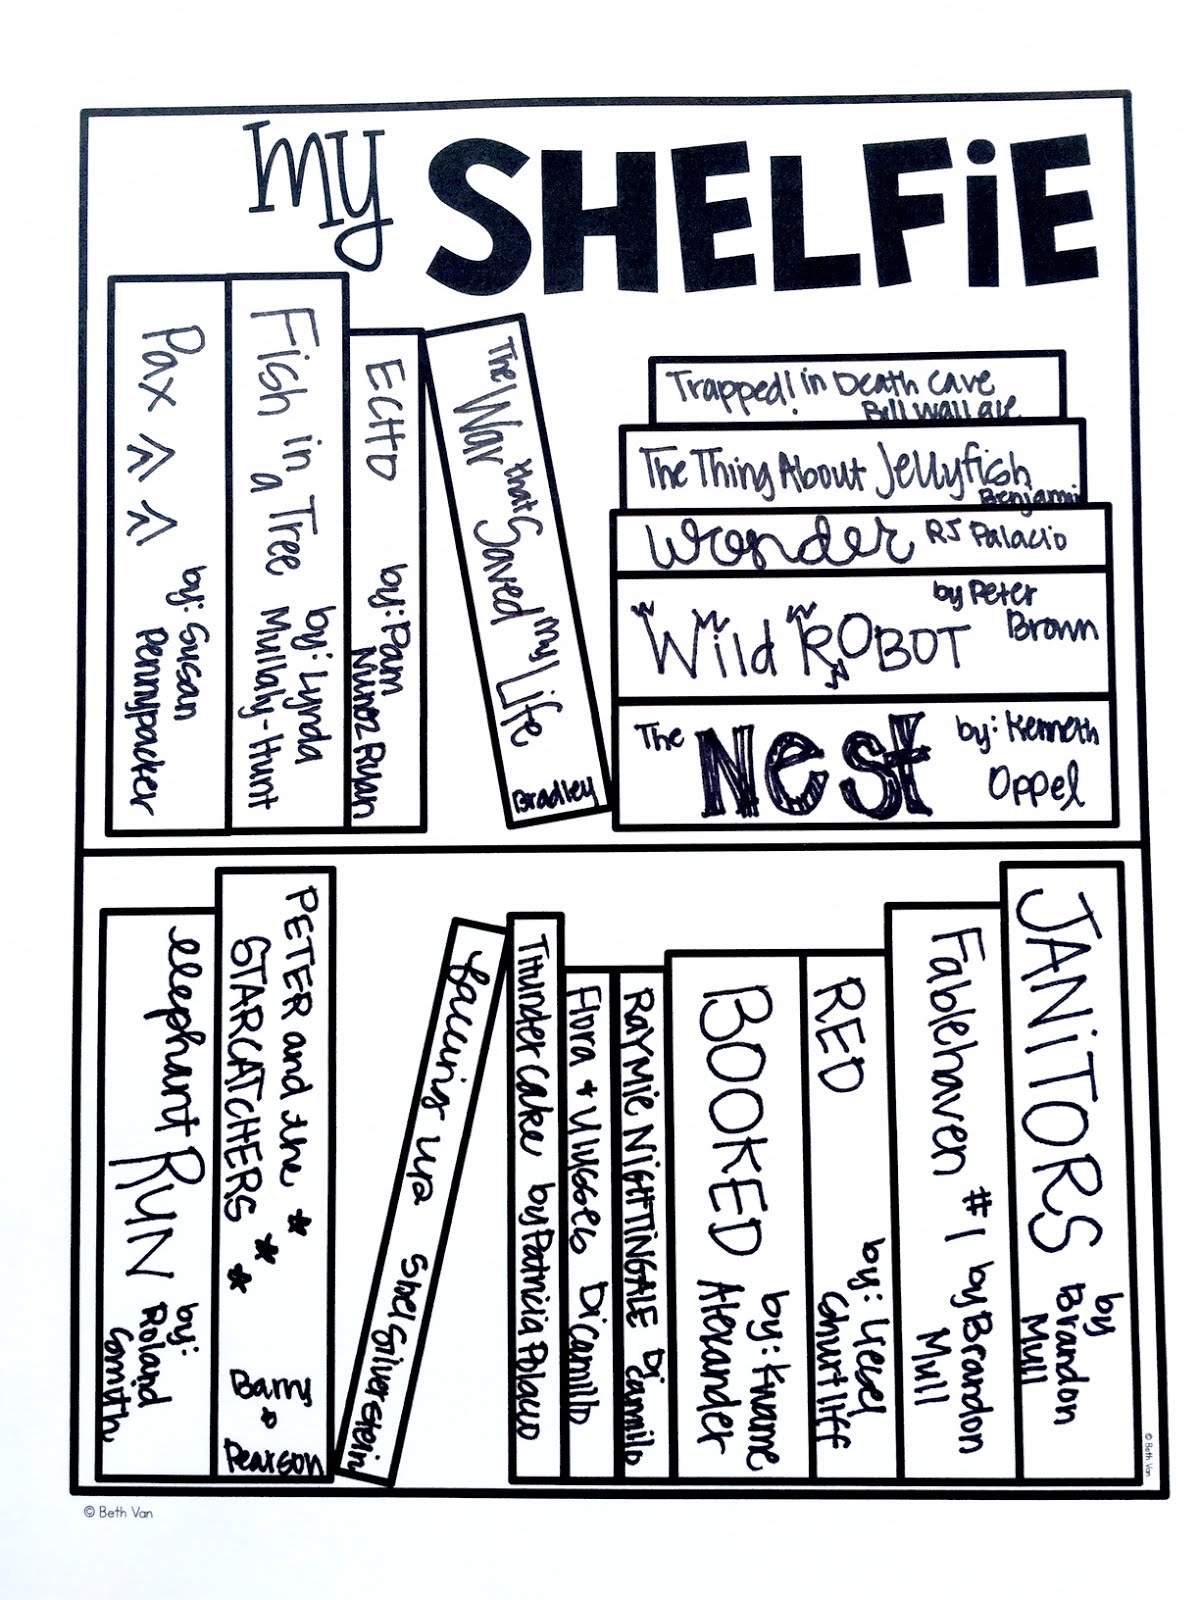 my SHELFiE
Pax
by: Susan
Pennypacker
Fish in
a Tree
by: Lynda
Mullaly-Hunt
ECHO
by: Pam
Nunoz Ryan
The War that Saved my Life
Bradley
Trapped! in Death Cave
Bill Wallace
The Thing About Jellyfish
Benjami
Wonder RJ Palacio
Wild ROBOT
by Peter
Brown
The Nest
by: Kenneth
Oppel
elephant RUN
by:
Roland
Smith
PETER and the
STARCATCHERS
Barry
&
Pearson
Falling up Shel Silverstein
Thunder Cake by Patricia Polacco
Flora & Ulysses Dicamillo
RAYMiE NiGHTiNGALE Di
camilo
BOOKED
by: Kwame
Alexander
RED
by: Liesl
Shurtliff
Fablehaven #1 by Brandon
Mull
JANiTORS
by
Brandon
Mull
© Beth Van
© Beth Van